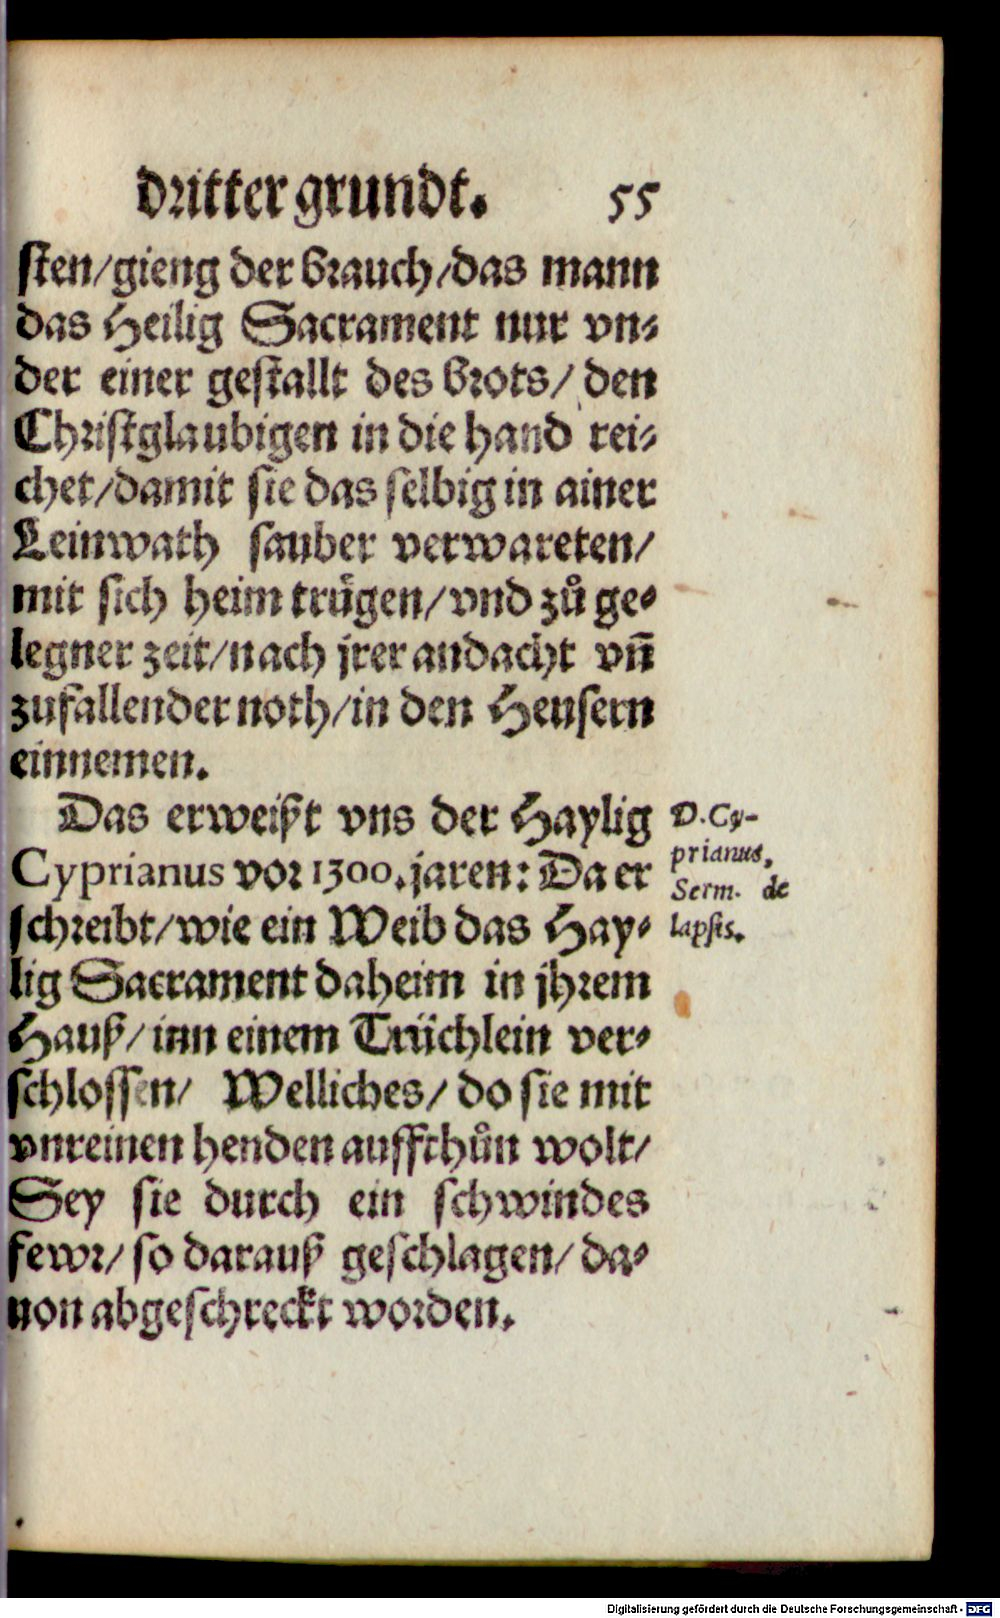 dritter grundt. 55
sten/gieng der brauch/das mann
das Heilig Sacrament nur vn-
der einer gestallt des brots/ den
Christglaubigen in die hand rei-
chet/damit sie das selbig in ainer
Leinwath sauber verwareten/
mit sich heim trügen/vnd zů ge-
legner zeit/nach jrer andacht vñ
zufallender noth/in den Heusern
einnemen.
Das erweißt vns der Haylig
Cyprianus vor 1300. jaren: Da er
schreibt/wie ein Weib das Hay-
lig Sacrament daheim in jhrem
Hauß/inn einem Trüchlein ver-
schlossen/ Welliches/ do sie mit
vnreinen henden auffthůn wolt/
Sey sie durch ein schwindes
fewr/ so darauß geschlagen/ da-
uon abgeschreckt worden.
D. Cy-
prianus,
Serm. de
lapsis.
Digitalisierung gefördert durch die Deutsche Forschungsgemeinschaft - DFG